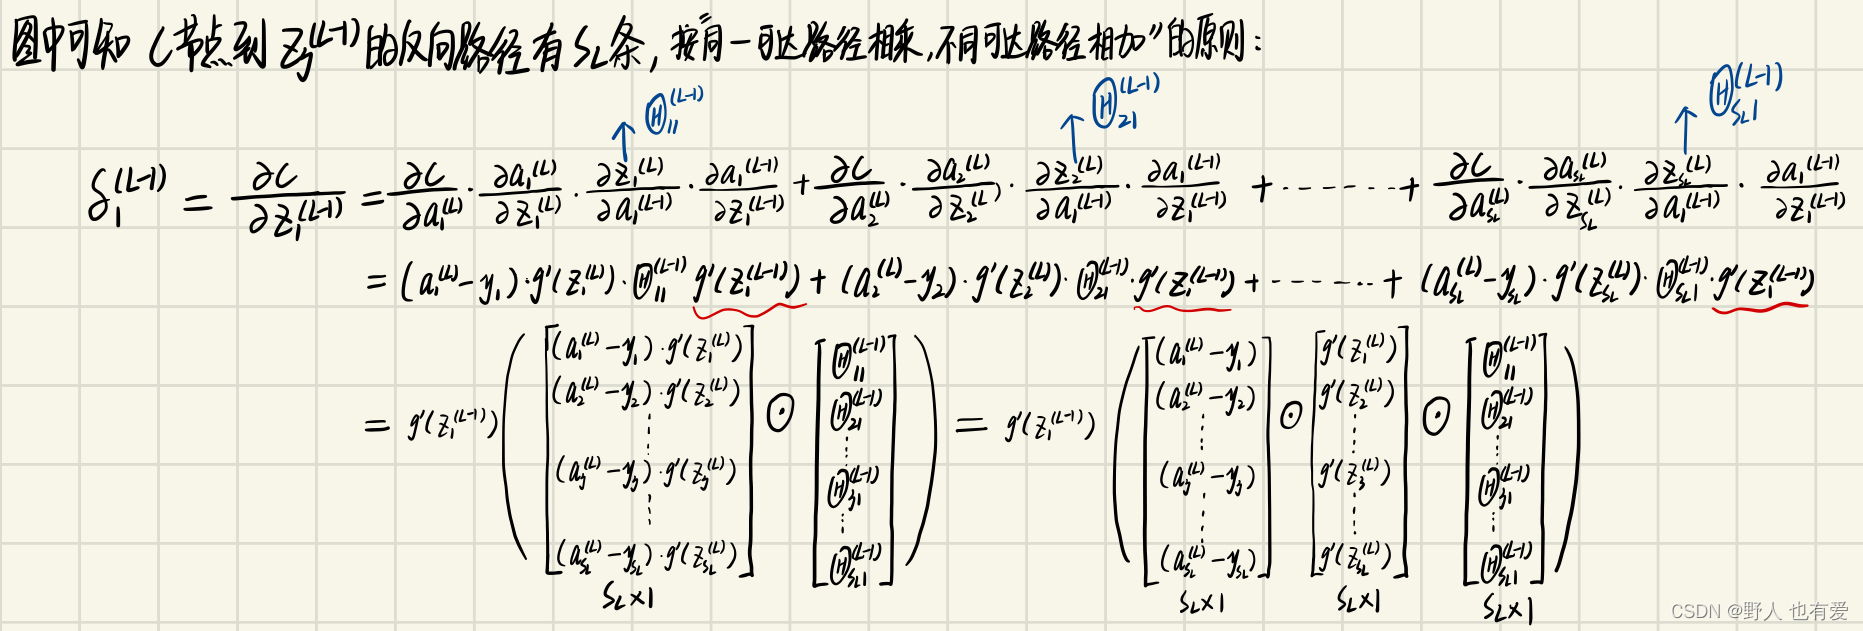 图中可知 C节点到 Zj^(L-1) 的反向路径有 S_L条, 按"同一可达路径相乘,不同可达路径相加"的原则:
Θ_11^(L-1) Θ_21^(L-1) Θ_{S_L 1}^(L-1)
δ_1^(L-1) = ∂C/∂z_1^(L-1) = ∂C/∂a_1^(L) · ∂a_1^(L)/∂z_1^(L) · ∂z_1^(L)/∂a_1^(L-1) · ∂a_1^(L-1)/∂z_1^(L-1) + ∂C/∂a_2^(L) · ∂a_2^(L)/∂z_2^(L) · ∂z_2^(L)/∂a_1^(L-1) · ∂a_1^(L-1)/∂z_1^(L-1) + ······ + ∂C/∂a_{S_L}^(L) · ∂a_{S_L}^(L)/∂z_{S_L}^(L) · ∂z_{S_L}^(L)/∂a_1^(L-1) · ∂a_1^(L-1)/∂z_1^(L-1)
= (a_1^(L) - y_1)·g'(z_1^(L))·Θ_11^(L-1) g'(z_1^(L-1)) + (a_2^(L) - y_2)·g'(z_2^(L))·Θ_21^(L-1)·g'(z_1^(L-1)) + ······ + (a_{S_L}^(L) - y_{S_L})·g'(z_{S_L}^(L))·Θ_{S_L 1}^(L-1)·g'(z_1^(L-1))
= g'(z_1^(L-1)) ( [(a_1^(L) - y_1)·g'(z_1^(L)) (a_2^(L) - y_2)·g'(z_2^(L)) ⋮ (a_j^(L) - y_j)·g'(z_j^(L)) ⋮ (a_{S_L}^(L) - y_{S_L})·g'(z_{S_L}^(L))] ⊙ [Θ_11^(L-1) Θ_21^(L-1) ⋮ Θ_j1^(L-1) ⋮ Θ_{S_L 1}^(L-1)] ) = g'(z_1^(L-1)) ( [(a_1^(L) - y_1) (a_2^(L) - y_2) ⋮ (a_j^(L) - y_j) ⋮ (a_{S_L}^(L) - y_{S_L})] ⊙ [g'(z_1^(L)) g'(z_2^(L)) ⋮ g'(z_j^(L)) ⋮ g'(z_{S_L}^(L))] ⊙ [Θ_11^(L-1) Θ_21^(L-1) ⋮ Θ_j1^(L-1) ⋮ Θ_{S_L 1}^(L-1)] )
S_L×1 S_L×1 S_L×1 S_L×1
CSDN @野人 也有爱